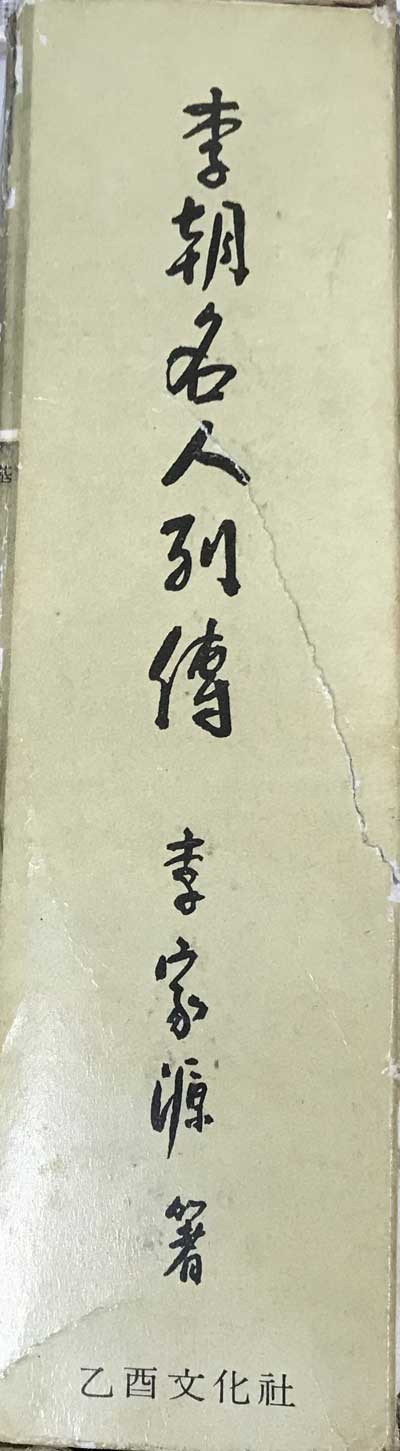 李朝名人列傳
李家源 著
乙酉文化社